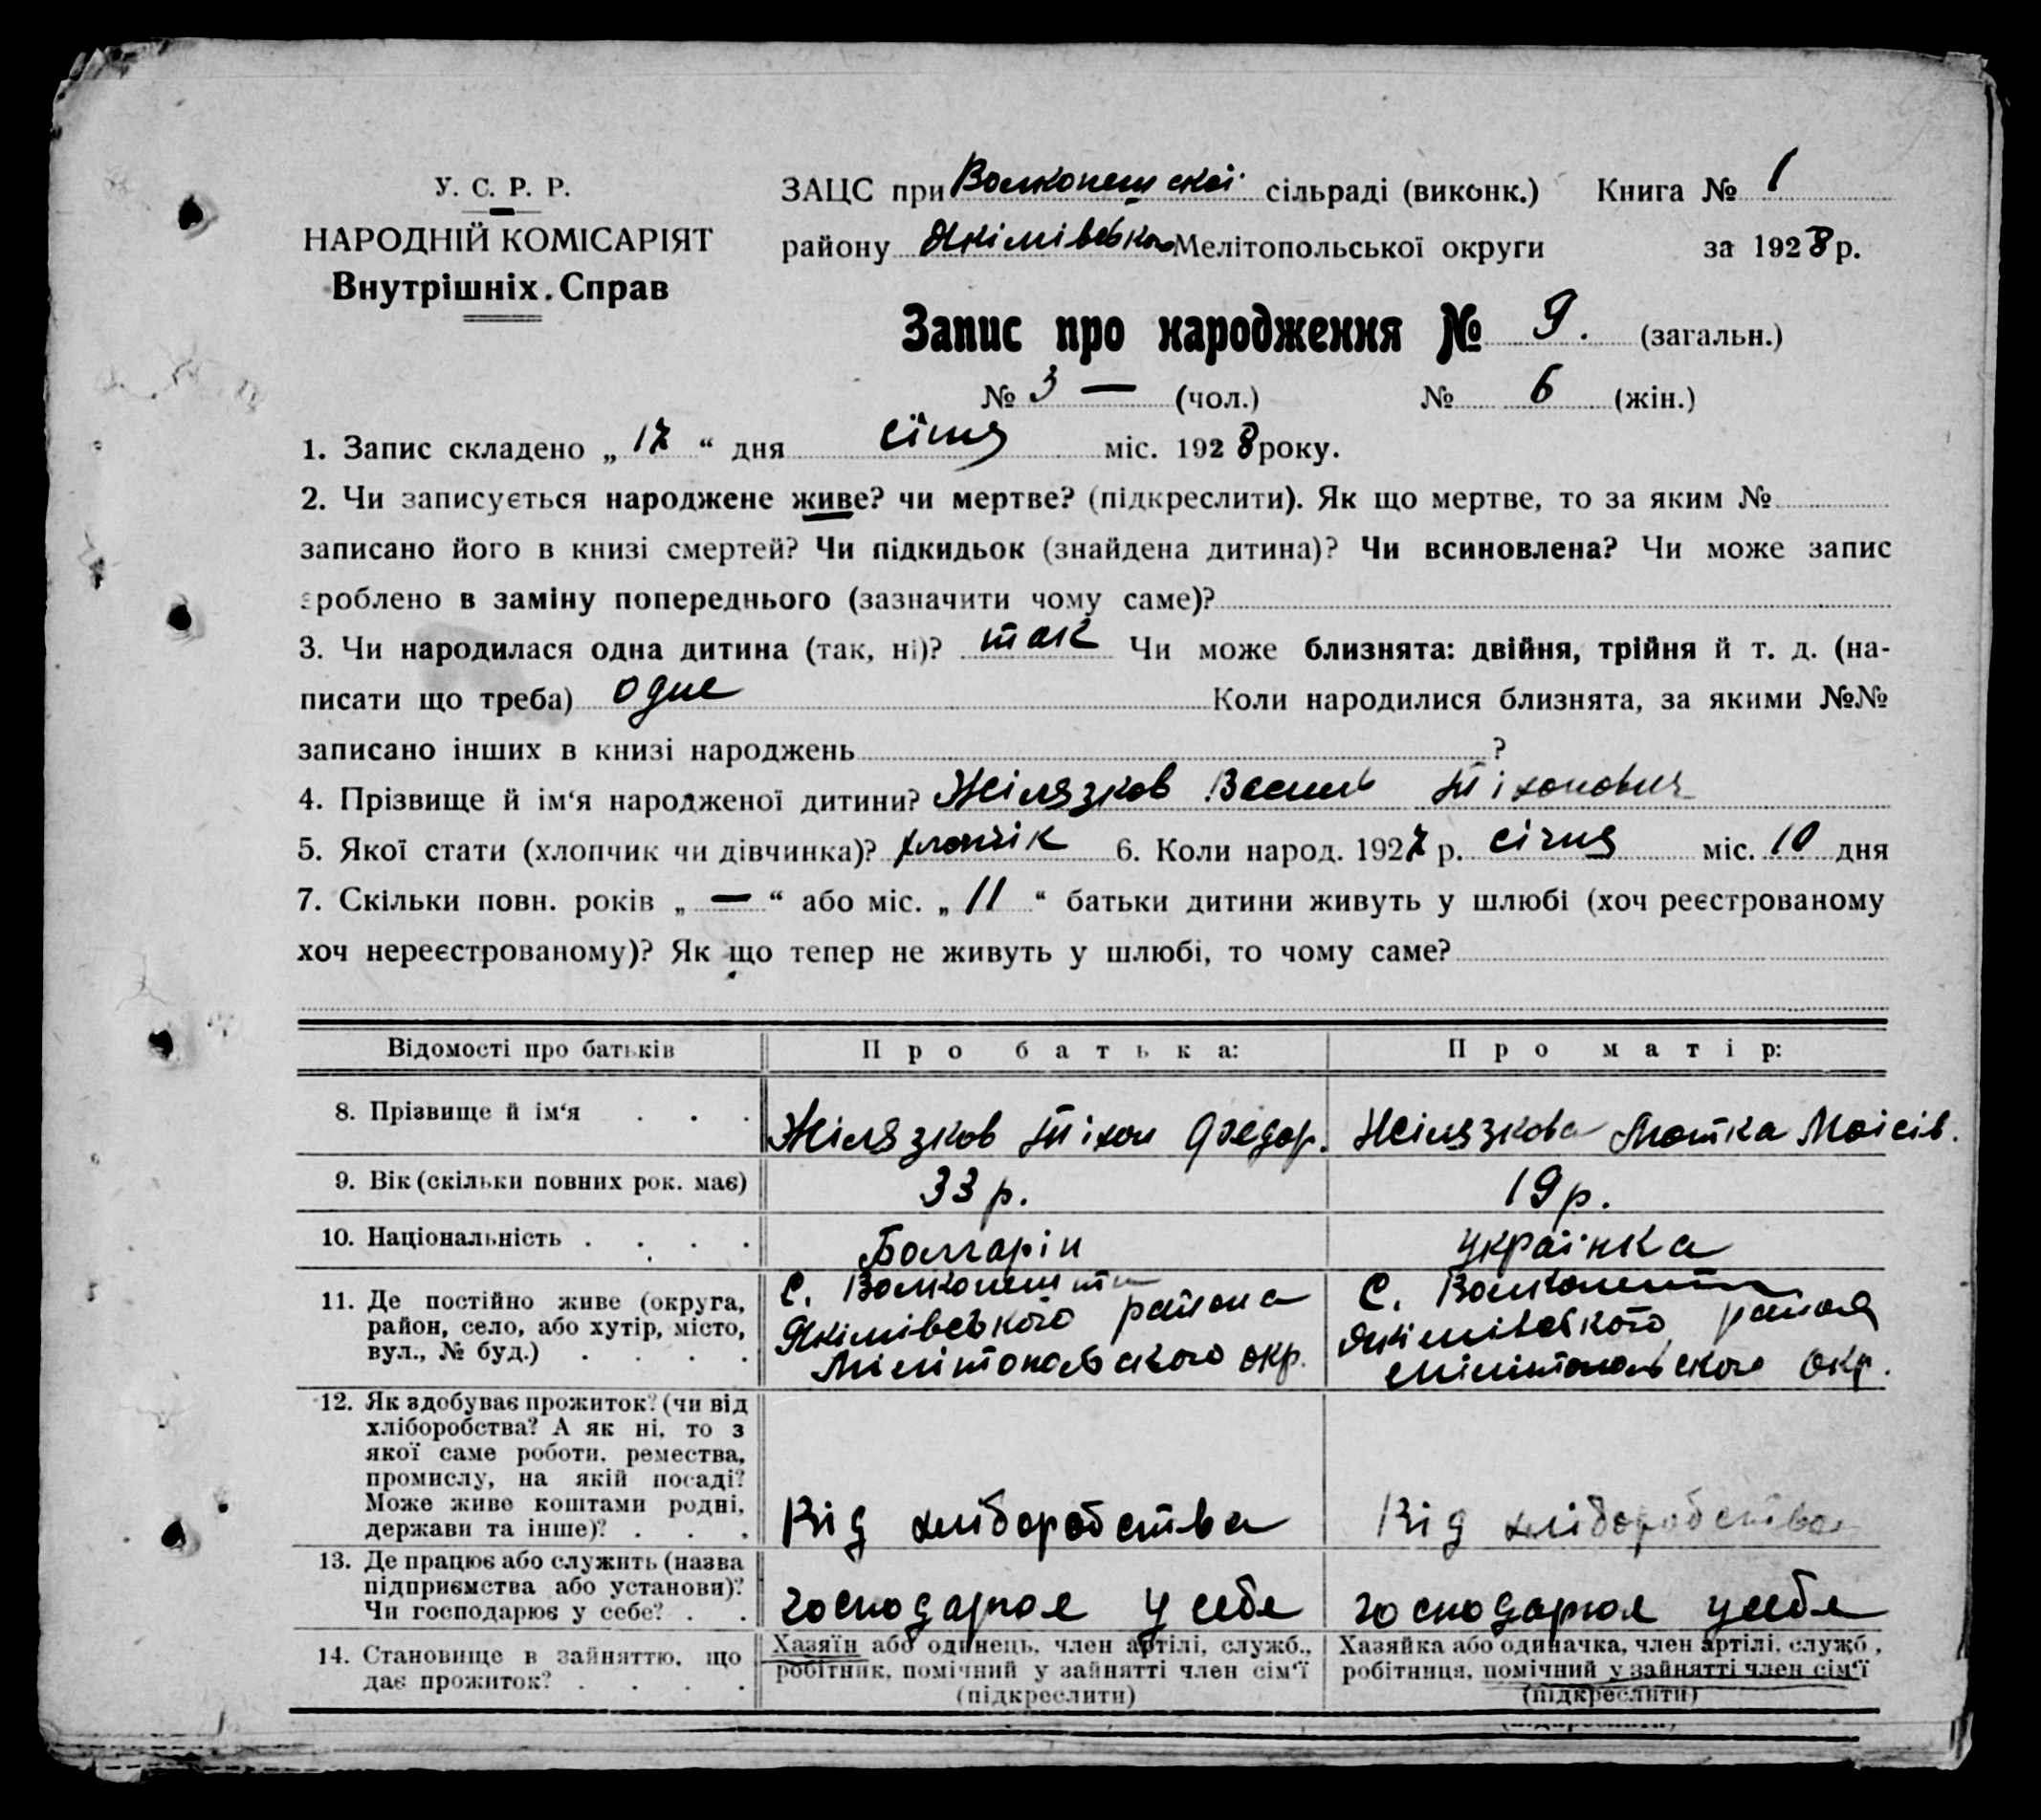 У. С. Р. Р.
НАРОДНІЙ КОМІСАРІЯТ
Внутрішніх Справ
ЗАЦС при Волконешской сільраді (виконк.) Книга № 1
району Якімівського Мелітопольської округи за 1928 р.
Запис про народження № 9. (загальн.)
№ 3 — (чол.) № 6 (жін.)
1. Запис складено „ 17 “ дня січня міс. 1928 року.
2. Чи записується народжене живе? чи мертве? (підкреслити). Як що мертве, то за яким №
записано його в книзі смертей? Чи підкидьок (знайдена дитина)? Чи всиновлена? Чи може запис
зроблено в заміну попереднього (зазначити чому саме)?
3. Чи народилася одна дитина (так, ні)? так Чи може близнята: двійня, трійня й т. д. (на-
писати що треба) одне Коли народилися близнята, за якими №№
записано інших в книзі народжень ?
4. Прізвище й ім‘я народженої дитини? Жілязков Василь Тіхонович
5. Якої стати (хлопчик чи дівчинка)? хлопчік 6. Коли народ. 1927 р. січня міс. 10 дня
7. Скільки повн. років „ — “ або міс. „ 11 “ батьки дитини живуть у шлюбі (хоч реєстрованому
хоч нереєстрованому)? Як що тепер не живуть у шлюбі, то чому саме?
Відомості про батьків Про батька: Про матір:
8. Прізвище й ім‘я . . . Жілязков Тіхон Федор. Жілязкова Мотка Моісів.
9. Вік (скільки повних рок. має) 33 р. 19 р.
10. Національність . . . . Болгарін українка
11. Де постійно живе (округа,
район, село, або хутір, місто,
вул., № буд.) . . . .
С. Волконешти
Якімівського района
Мілітопольского окр.
С. Волконешти
Якімівского района
Мілітопольского окр.
12. Як здобуває прожиток? (чи від
хліборобства? А як ні, то з
якої саме роботи, ремества,
промислу, на якій посаді?
Може живе коштами родні,
держави та інше)? . . .
Від хліборобства Від хліборобства
13. Де працює або служить (назва
підприємства або установи)?
Чи господарює у себе? . .
господарює у себе господарює у себе
14. Становище в зайняттю, що
дає прожиток? . . . .
Хазяїн або одинець, член артілі, служб.,
робітник, помічний у зайнятті член сім‘ї
(підкреслити)
Хазяйка або одиначка, член артілі, служб.,
робітниця, помічний у зайнятті член сім‘ї
(підкреслити)